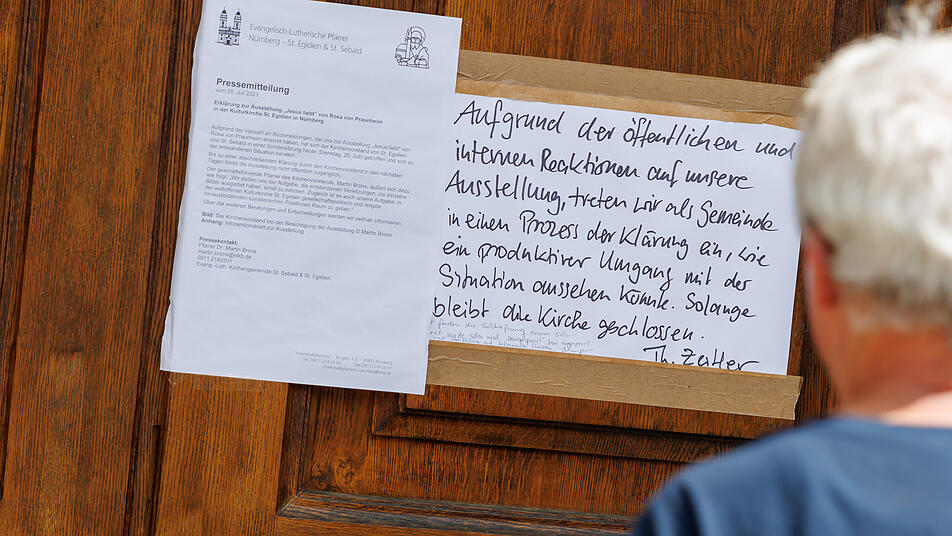 Evangelisch-Lutherische Pfarrei
Nürnberg – St. Egidien & St. Sebald
Pressemitteilung
vom 25. Juli 2023
Erklärung zur Ausstellung „Jesus liebt“ von Rosa von Praunheim
in der Kulturkirche St. Egidien in Nürnberg
Aufgrund der Vielzahl an Rückmeldungen, die uns zur Ausstellung „Jesus liebt“ von
Rosa von Praunheim erreicht haben, hat sich der Kirchenvorstand von St. Egidien
und St. Sebald in einer Sondersitzung heute (Dienstag, 25. Juli) getroffen und sich zu
der entstandenen Situation beraten.
Bis zu einer abschließenden Klärung durch den Kirchenvorstand in den nächsten
Tagen bleibt die Ausstellung nicht öffentlich zugänglich.
Der geschäftsführende Pfarrer des Kirchenvorstands, Martin Brons, äußert sich dazu
wie folgt: „Wir stellen uns der Aufgabe, die entstandenen Verletzungen, die einzelne
Bilder ausgelöst haben, ernst zu nehmen. Zugleich ist es auch unsere Aufgabe, in
der weltoffenen Kulturkirche St. Egidien gesellschaftspolitisch und religiös
herausfordernden künstlerischen Positionen Raum zu geben.“
Über die weiteren Beratungen und Entscheidungen werden wir zeitnah informieren.
Bild: Der Kirchenvorstand bei der Besichtigung der Ausstellung © Martin Brons
Anhang: Informationsblatt zur Ausstellung
Pressekontakt:
Pfarrer Dr. Martin Brons
martin.brons@elkb.de
0911 2142501
Evang.-Luth. Kirchengemeinde St. Sebald & St. Egidien
Aufgrund der öffentlichen und
internen Reaktionen auf unsere
Ausstellung, treten wir als Gemeinde
in einen Prozess der Klärung ein, wie
ein produktiver Umgang mit der
Situation aussehen könnte. Solange
bleibt die Kirche geschlossen.
Th. Zeitler